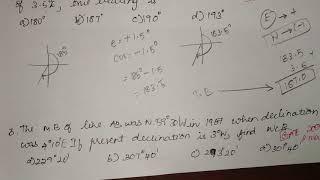 of 3.5°,
a) 180° b) 187° c) 190° d) 193°
E → +
N → (-)
185°
e = +1.5°
con = -1.5°
= 185 - 1.5
= 183.5
183.5
3.5
187.0
T.B
3. The M.B of line AB was N 59°30'W in 1967 when declination
was 4°10'E If present declination is 3°W, find
a) 229°20' b) 307°40' c) d)